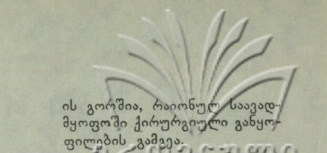 ის გორშია, რაიონულ საავად-
მყოფოში ქირურგიული განყო-
ფილების გამგეა.